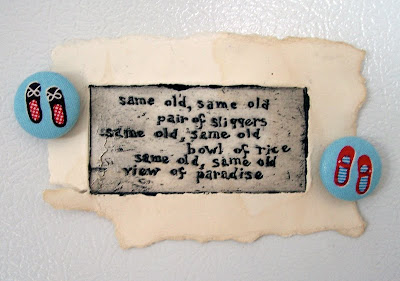 same old, same old
pair of sliggers
same old, same old
bowl of rice
same old, same old
view of paradise